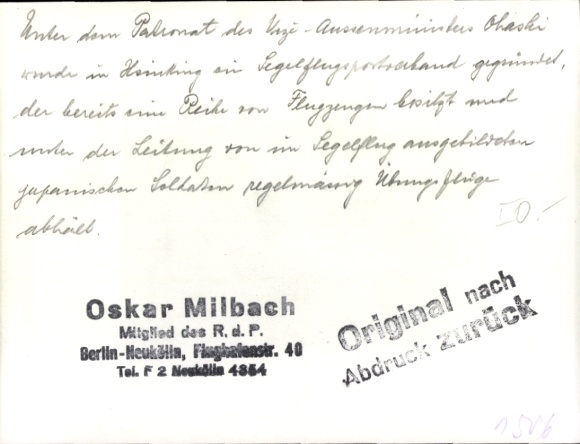 Unter dem Patronat des Vize-Aussenministers Ohashi
wurde in Hsinking ein Segelflugsportverband gegründet,
der bereits eine Reihe von Flugzeugen besitzt und
unter der Leitung von im Segelflug ausgebildeten
japanischen Soldaten regelmässig Übungsflüge
abhält.
Oskar Milbach
Mitglied des R. d. P.
Berlin-Neukölln, Flughafenstr. 40
Tel. F 2 Neukölln 4354
Original nach
Abdruck zurück